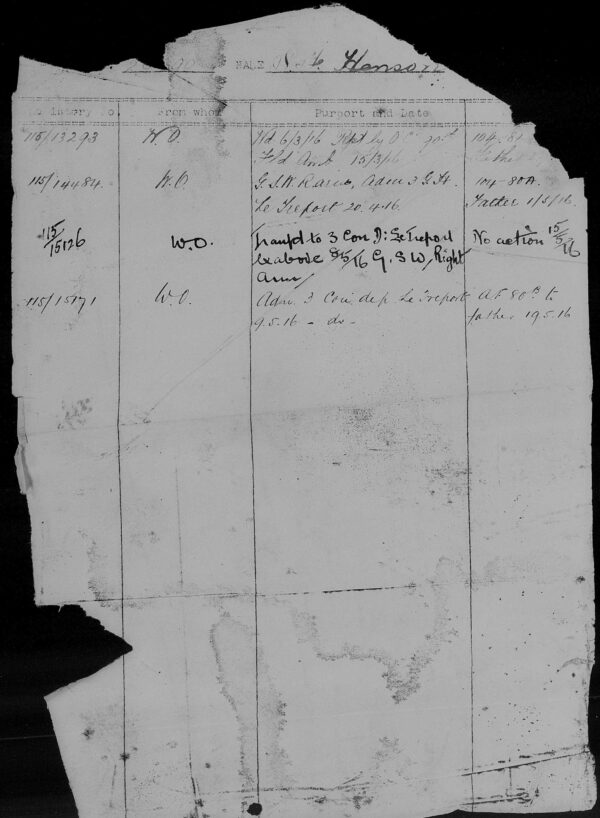 NAME Hanson
Registry No. From whom Purport and Date
115/13293 W.O. Wd 6/3/16 by O.C. 104-81
Fld Amb 15/3/16 father
115/14484 W.O. G.S.W. R. arm, Adm 3 G. H. 104-80A.
Le Treport 20.4.16. Father 1/5/16.
115/15126 W.O. Transfd to 3 Con D: Le Treport No action 15/5/16
as above 8/5/16 G.S.W, Right
Arm
115/15171 W.O. Adm. 3 Con dep. Le Treport A.F. 80B to
9.5.16 - do - father 19.5.16